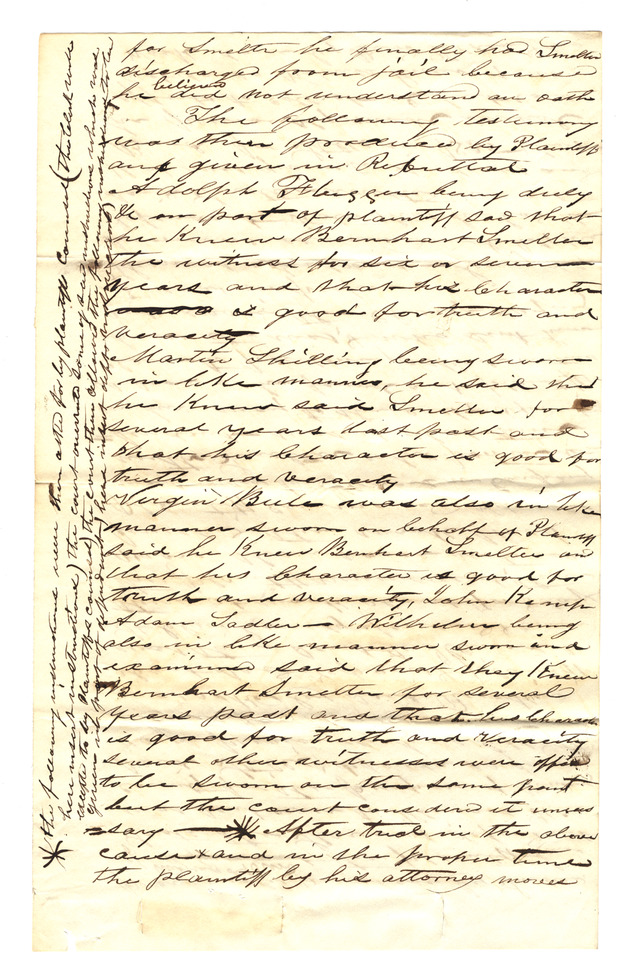 for Smelter he finally had Smelter
discharged from jail because
he believed did not understand an oath
The following testimony
was then produced by Plaintiff
and given in Rebuttal
Adolph Flugger being duly
&c on part of plaintiff said that
he Knew Bernhart Smelter
the witness for six or seven
years and that his Character
is good for truth and
veracity
Martin Shilling being sworn
in like manner, he said that
he Knew said Smelter for
several years last past and
that his Character is good for
truth and veracity
Virgin Bule was also in like
manner sworn on behalf of Plaintiff
said he Knew Benhart Smelter and
that his Character is good for
truth and veracity, John Kemp
Adam Sadler – Wilhelm being
also in like manner sworn and
examined said that they Knew
Bernhart Smelter for several
years past and that his Character
is good for truth and veracity
several other witnesses were offered
to be sworn on the same point
but the court considered it unneces
=sary * After trial in the above
cause & and in the proper time
the plaintiff by his attorney moves
* the following instructions were then asked for by plaintiffs counsel (the clerk will
here insert instructions) the court overruled
excepted to by plaintiffs counsel) the court then allowed the following instructions to be
given on part of defendant (here insert defendants instructions)